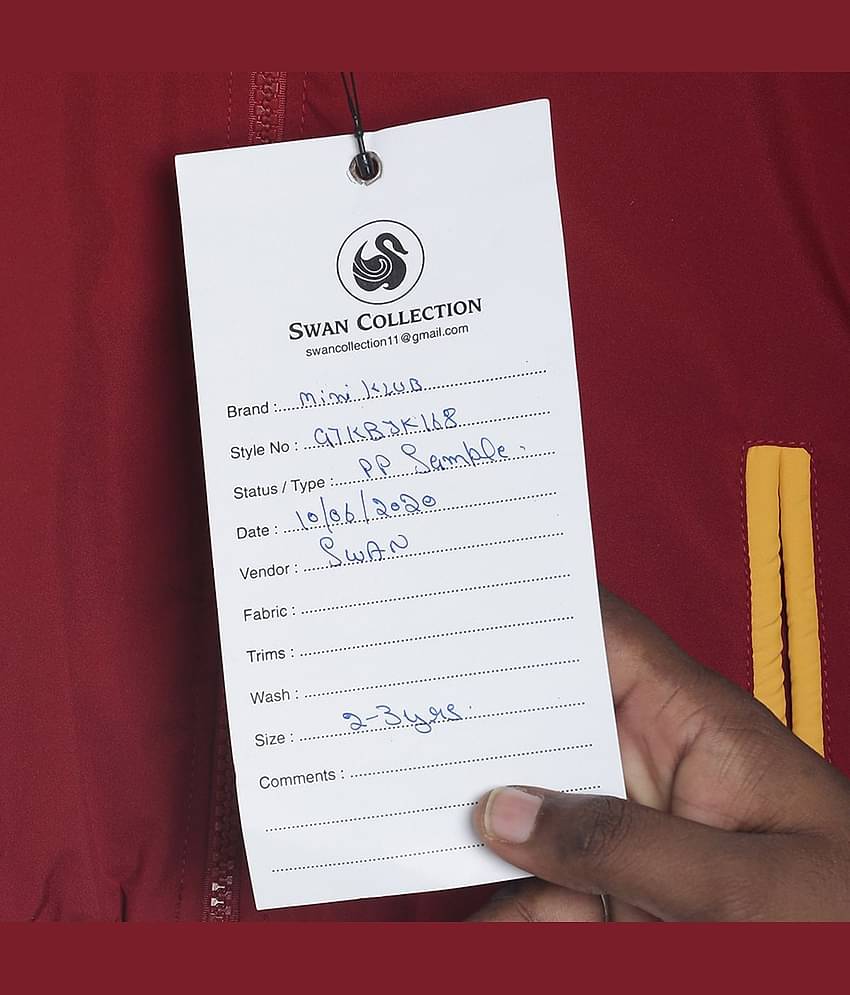 SWAN COLLECTION
swancollection11@gmail.com
Brand : Mini KLUB
Style No : G7KBJK168
Status / Type : PP Sample.
Date : 10/06/2020
Vendor : SWAN
Fabric :
Trims :
Wash :
Size : 2-3yrs.
Comments :